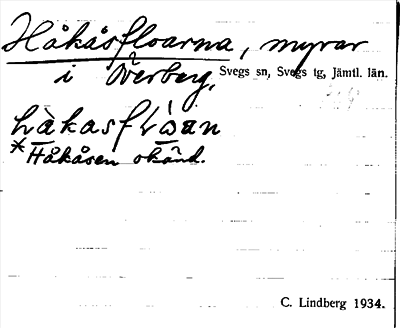 Håkåsfloarna, myrar
i Överberg, Svegs sn, Svegs tg, Jämtl. län.
*Håkåsen okänd.
C. Lindberg 1934.